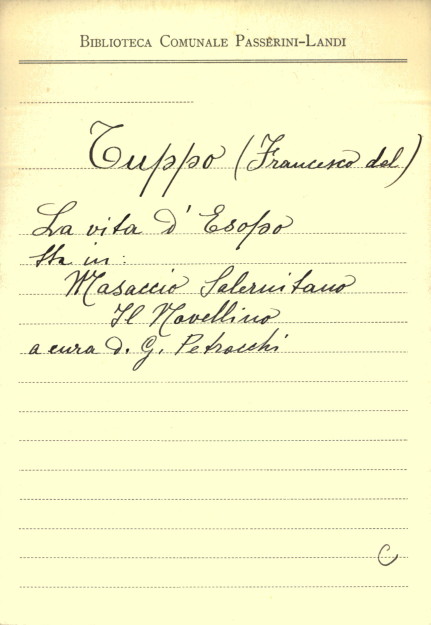 BIBLIOTECA COMUNALE PASSERINI-LANDI
Tuppo (Francesco del)
La vita d' Esopo
Sta in:
Masaccio Salernitano
Il Novellino
a cura d. G. Petrocchi
C